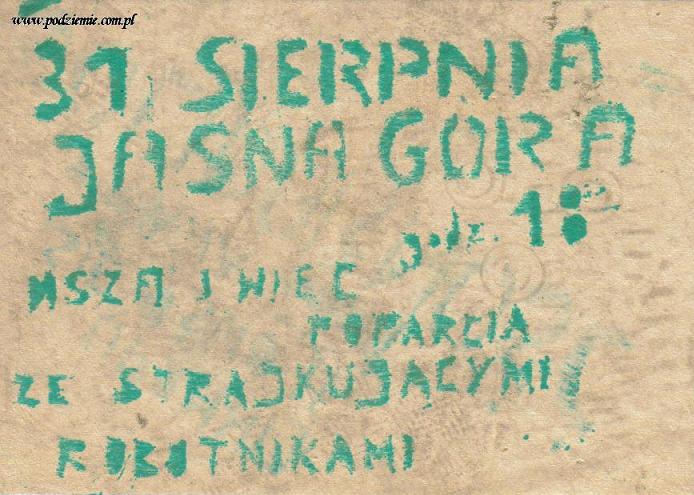 www.podziemie.com.pl
31 SIERPNIA
JASNA GORA
godz. 18
MSZA I WIEC
POPARCIA
ZE STRAJKUJĄCYMI
ROBOTNIKAMI